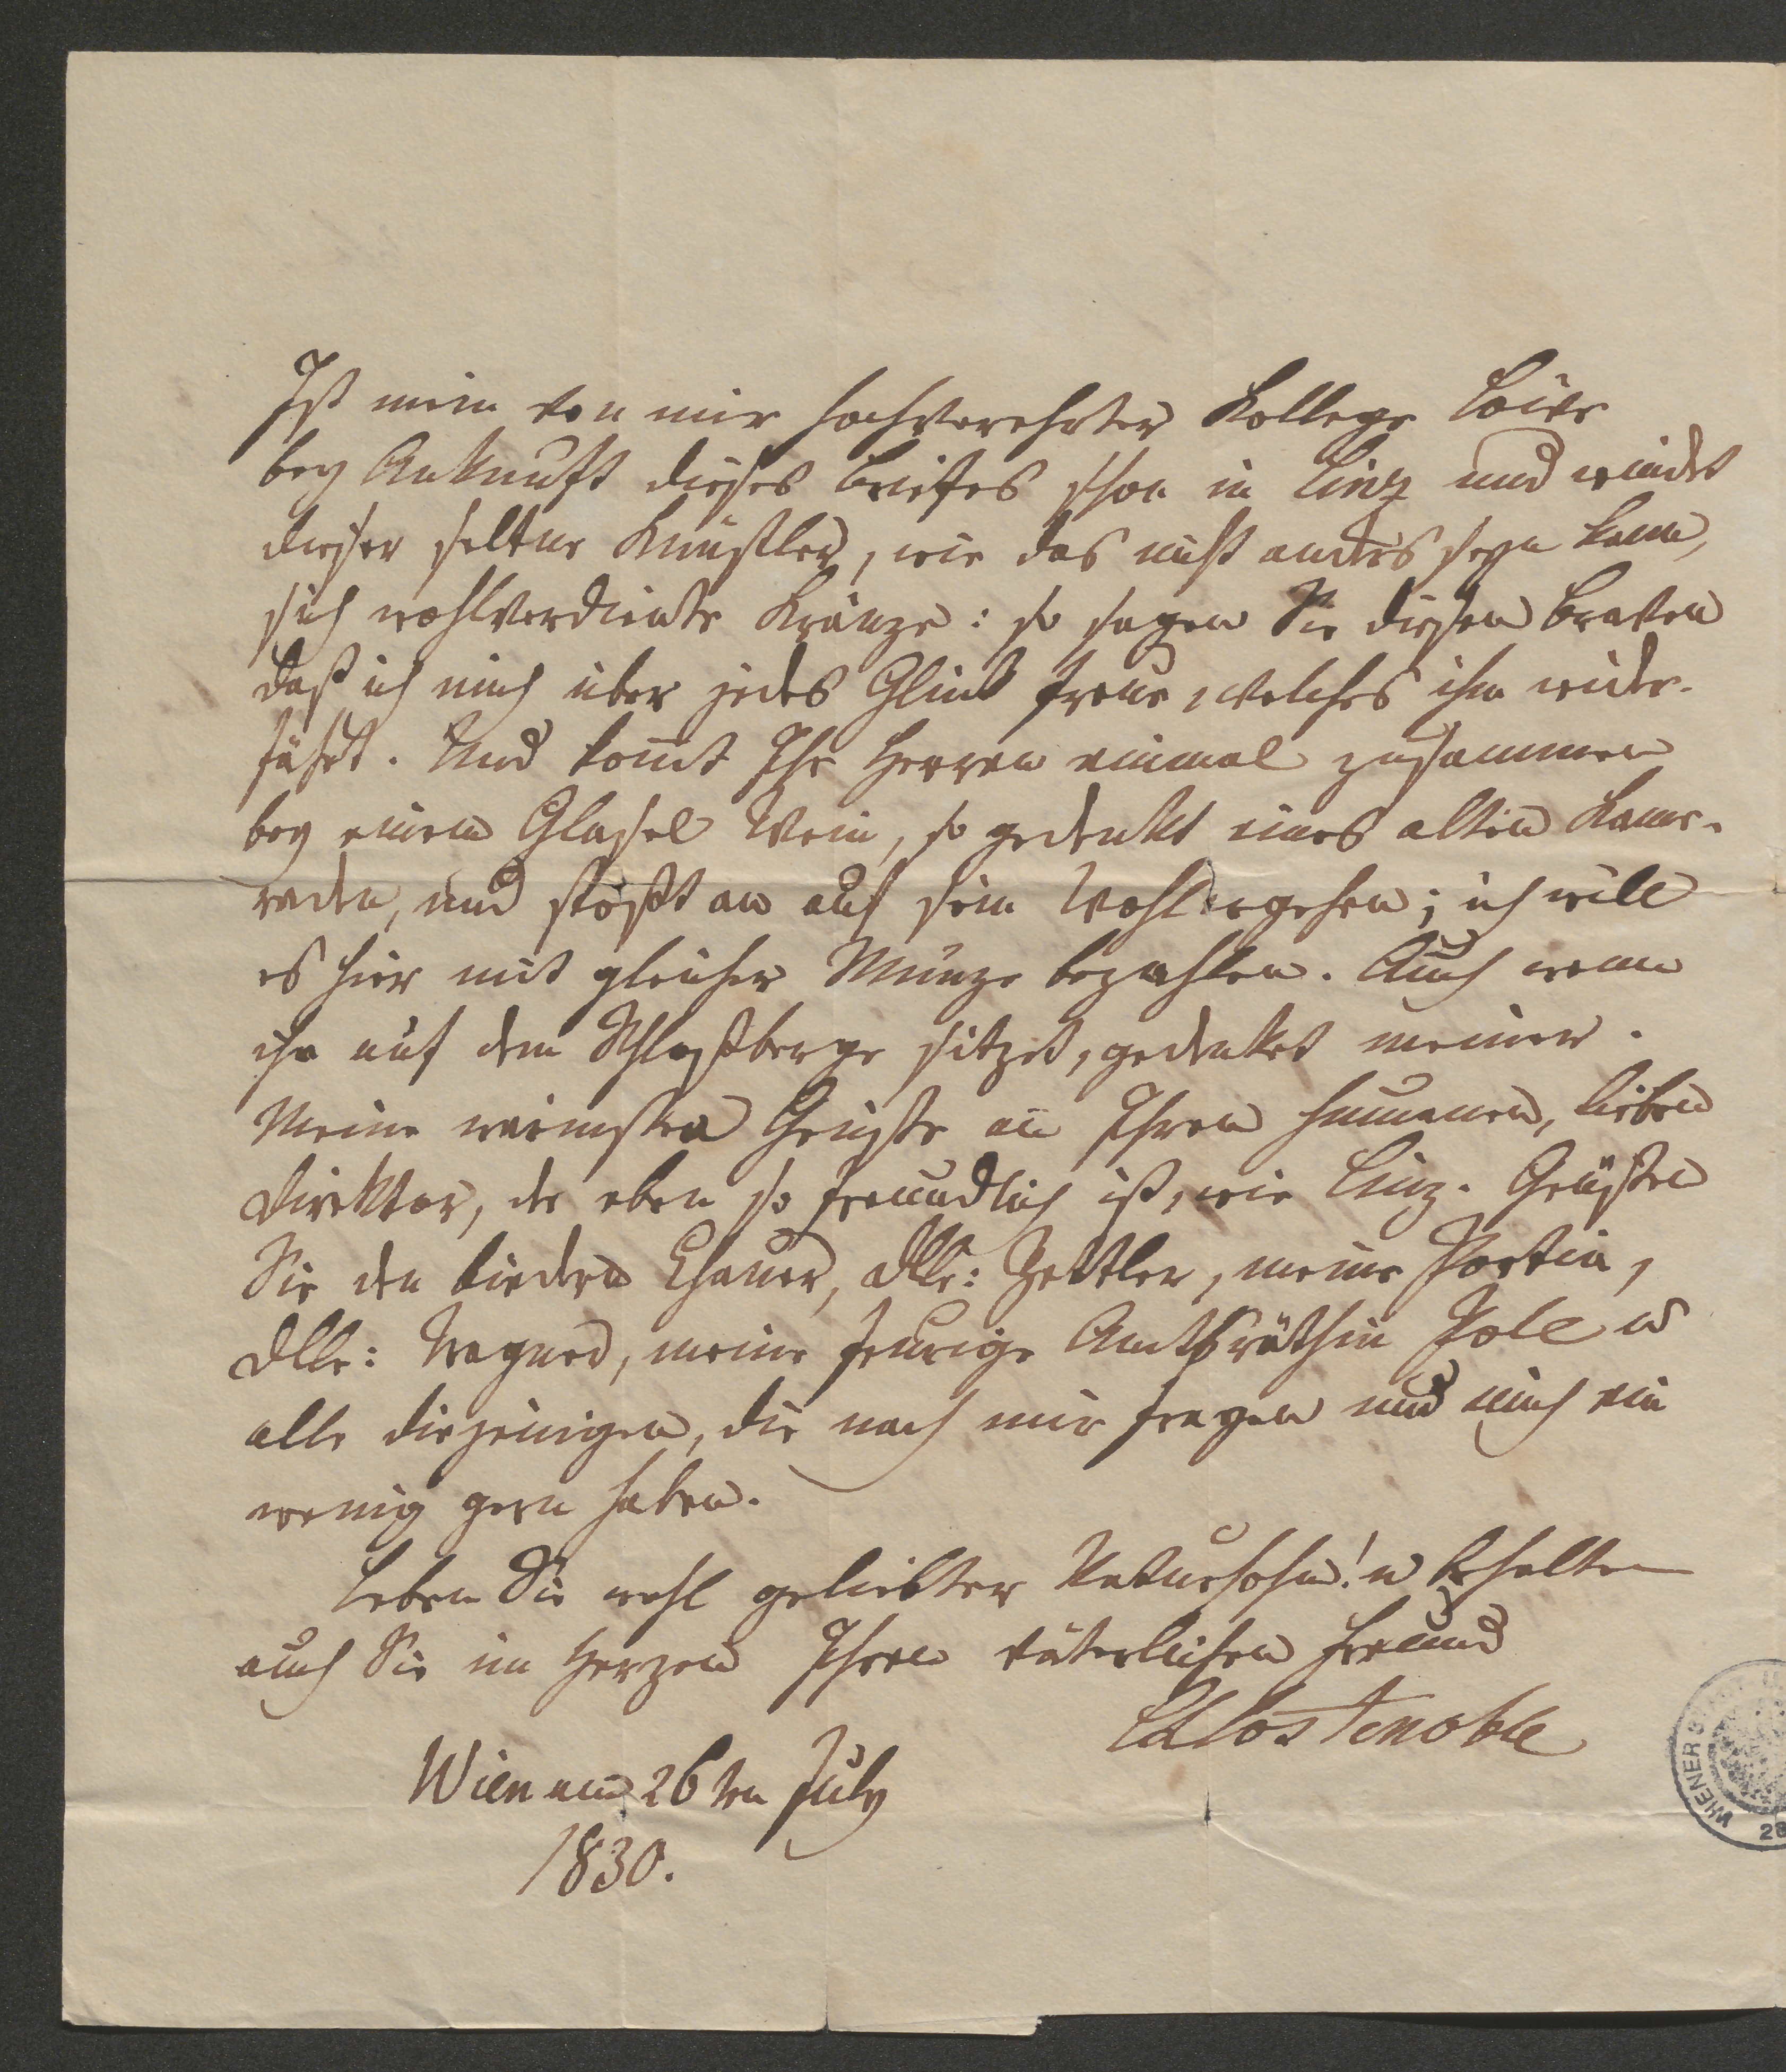 Ist mein von mir hochverehrter Kollege Löwe
bey Ankunft dieses Briefes schon in Linz und windet
dieser seltne Künstler, wie das nicht anders seyn kann,
sich wohlverdiente Kränze: so sagen Sie diesem Braven
daß ich mich über jedes Glück freue, welches ihm wider-
fährt. Und kom̅t Ihr Herren einmal zusammen
bey einem Glasel Wein, so gedenkt eines alten Kame-
raden, und stoßt an auf sein Wohlergehen; ich will
es hier mit gleicher Münze bezahlen. Auch wenn
ihr auf dem Schloßberge sitzet, gedenket meiner.
Meine wärmsten Grüße an Ihren humanen, lieben
Direktor, der eben so freundlich ist, wie Linz. Grüßen
Sie den biedern, Dlle: Zettler, meine Portia,
Dlle: Wagner, meine feurige Amtsräthin Pole u
alle diejenigen, die nach mir fragen und mich ein
wenig gern haben.
Leben Sie wohl geliebter Natursohn! u behalten
auch Sie im Herzen Ihren väterlichen Freund
Costenoble
Wien am 26ten July
1830.
WIENER
28